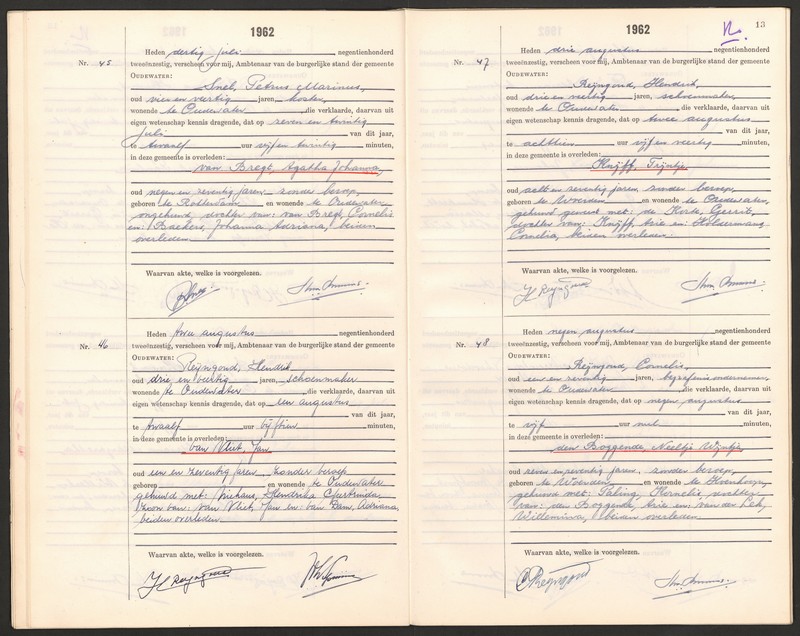 1962
Heden dertig juli negentienhonderd
Nr. 45 tweeënzestig, verscheen voor mij, Ambtenaar van de burgerlijke stand der gemeente
OUDEWATER:
Snel, Petrus Marinus,
oud vier en veertig jaren, koster,
wonende te Oudewater die verklaarde, daarvan uit
eigen wetenschap kennis dragende, dat op zeven en twintig
juli van dit jaar,
te twaalf uur vijf en twintig minuten,
in deze gemeente is overleden:
van Bregt, Agatha Johanna,
oud negen en zeventig jaren zonder beroep,
geboren te Rotterdam en wonende te Oudewater
ongehuwd, dochter van: van Bregt, Cornelis
en: Backers, Johanna Adriana, beiden
overleden
Waarvan akte, welke is voorgelezen.
Heden twee augustus negentienhonderd
Nr. 46 tweeënzestig, verscheen voor mij, Ambtenaar van de burgerlijke stand der gemeente
OUDEWATER:
Reijngoud, Hendrik
oud drie en veertig jaren, schoenmaker
wonende te Oudewater die verklaarde, daarvan uit
eigen wetenschap kennis dragende, dat op een augustus
van dit jaar,
te twaalf uur vijftien minuten,
in deze gemeente is overleden:
van Vliet, Jan
oud een en zeventig jaren, zonder beroep
geboren en wonende te Oudewater
gehuwd met: Hendrika
zoon van: van Vliet, Jan en: van Dam, Adriana,
beiden overleden
Waarvan akte, welke is voorgelezen.
H Reijngoud
1962
13
Heden drie augustus negentienhonderd
Nr. 47 tweeënzestig, verscheen voor mij, Ambtenaar van de burgerlijke stand der gemeente
OUDEWATER:
Reijngoud, Hendrik,
oud drie en veertig jaren, schoenmaker,
wonende te Oudewater die verklaarde, daarvan uit
eigen wetenschap kennis dragende, dat op twee augustus
van dit jaar,
te achttien uur vijf en veertig minuten,
in deze gemeente is overleden:
Knijff, Trijntje
oud acht en zeventig jaren zonder beroep,
geboren te Woerden en wonende te Oudewater,
gehuwd geweest met: de Korte, Gerrit,
dochter van: Knijff, Arie en:
Cornelia, beiden overleden
Waarvan akte, welke is voorgelezen.
H Reijngoud
Heden negen augustus negentienhonderd
Nr. 48 tweeënzestig, verscheen voor mij, Ambtenaar van de burgerlijke stand der gemeente
OUDEWATER:
Reijngoud, Cornelis,
oud een en zeventig jaren, begrafenisondernemer
wonende te Oudewater die verklaarde, daarvan uit
eigen wetenschap kennis dragende, dat op negen augustus
van dit jaar,
te vijf uur nul minuten,
in deze gemeente is overleden:
den Boggende, Neeltje Wijntje,
oud zeven en zeventig jaren, zonder beroep,
geboren te Woerden en wonende te
gehuwd met: Kornelis, dochter
van: den Boggende, Arie en: van der Lek,
Willemina, beiden overleden
Waarvan akte, welke is voorgelezen.
C Reijngoud